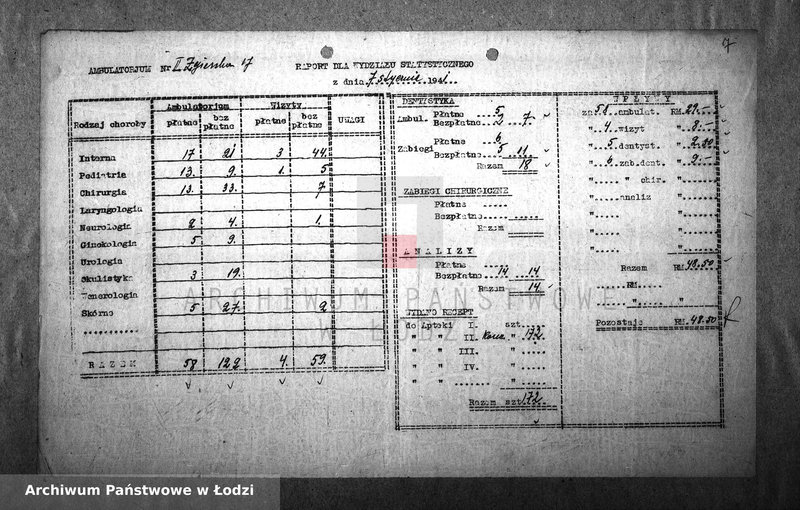 7
AMBULATORJUM Nr II Zgierska 17
RAPORT DLA WYDZIAŁU STATYSTYCZNEGO
z dnia 7 stycznia 1941.
Rodzaj choroby Ambulatorium Wizyty UWAGI
płatne bez płatne płatne bez płatne
Interna 17 21 3 44
Pediatria 13. 9. 1. 5
Chirurgia 13. 33. 7
Laryngologia
Neurologia 2 4. 1.
Ginekologia 5 9.
Urologia
Okulistyka 3 19.
Wenerologia
Skórne 5 27. 2
..........
RAZEM 58 122 4. 59.
DENTYSTYKA
Ambul. Płatne ....5
Bezpłatne ..2 ..7.
Zabiegi Płatne ....6
Bezpłatne ..5 ..11..
Razem 18
ZABIEGI CHIRURGICZNE
Płatne .....
Bezpłatne..... ......
Razem
ANALIZY
Płatne .....
Bezpłatne..14 ..14
Razem ..14
WYDANO RECEPT
do Apteki I. szt.....
" " II. " 172
" " III. " .....
" " IV. " .....
" " ....... " .....
Razem szt.172
WPŁYWY
za.58..ambulat. RM.29.-
"..4..wizyt "..8.-
"..5..dentyst. "..2.50
"..6..zab.dent. "..9.-
"..... " chir. "......
".....analiz "......
"..... "......
"..... "......
"..... "......
Razem RM.48.50
......RM.....
...... "
Pozostaje RM.48.50
ARCHIWUM PAŃSTWOWE
W ŁODZI
Archiwum Państwowe w Łodzi